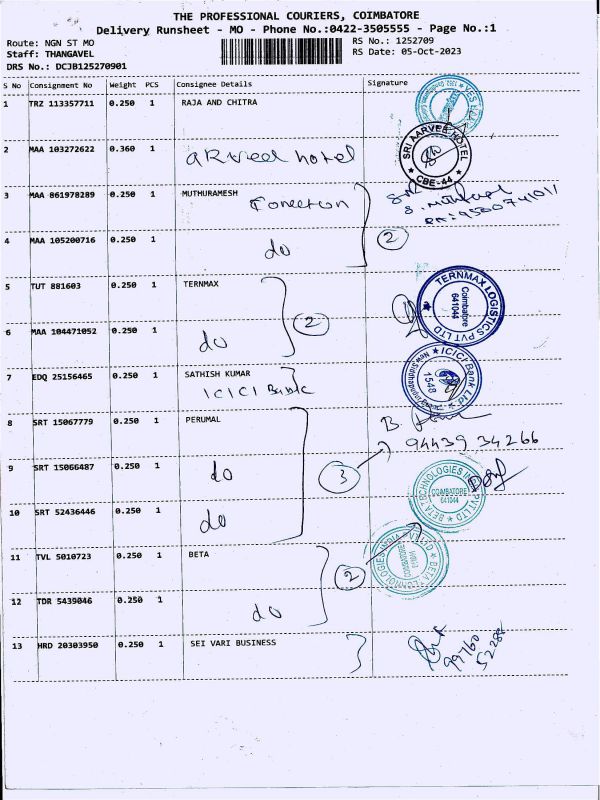 THE PROFESSIONAL COURIERS, COIMBATORE
Delivery Runsheet - MO - Phone No.:0422-3505555 - Page No.:1
Route: NGN ST MO RS No.: 1252709
Staff: THANGAVEL RS Date: 05-Oct-2023
DRS No.: DCJB125270901
S No Consignment No Weight PCS Consignee Details Signature
1 TRZ 113357711 0.250 1 RAJA AND CHITRA
2 MAA 103272622 0.360 1 aRveed hotel
SRI AARVEE HOTEL
CBE-44
3 MAA 861978289 0.250 1 MUTHURAMESH
9500741011
4 MAA 105200716 0.250 1 do 2
5 TUT 881603 0.250 1 TERNMAX
TERNMAX LOGISTICS PVT LTD
Coimbatore
641044
6 MAA 104471052 0.250 1 do 2
7 EDQ 25156465 0.250 1 SATHISH KUMAR
ICICI Bank
ICICI Bank Ltd
1548
8 SRT 15067779 0.250 1 PERUMAL
94439 34266
9 SRT 15066487 0.250 1 do 3
10 SRT 52436446 0.250 1 do
BETA TECHNOLOGIES INDIA PVT LTD
COIMBATORE
641044
11 TVL 5010723 0.250 1 BETA 2
BETA TECHNOLOGIES INDIA PVT LTD
COIMBATORE
641044
12 TDR 5439046 0.250 1 do
13 HRD 20303950 0.250 1 SEI VARI BUSINESS
99760